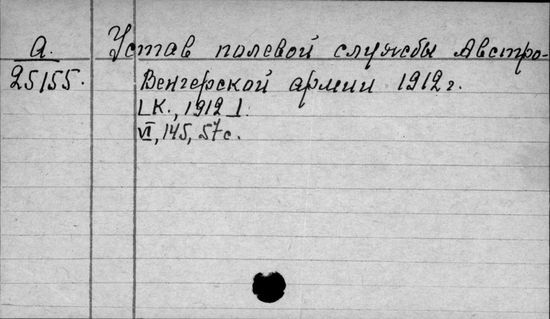 А. Устав полевой службы Австро-
25155. Венгерской армии 1912 г.
[К., 1912].
VI, 145, 57 с.